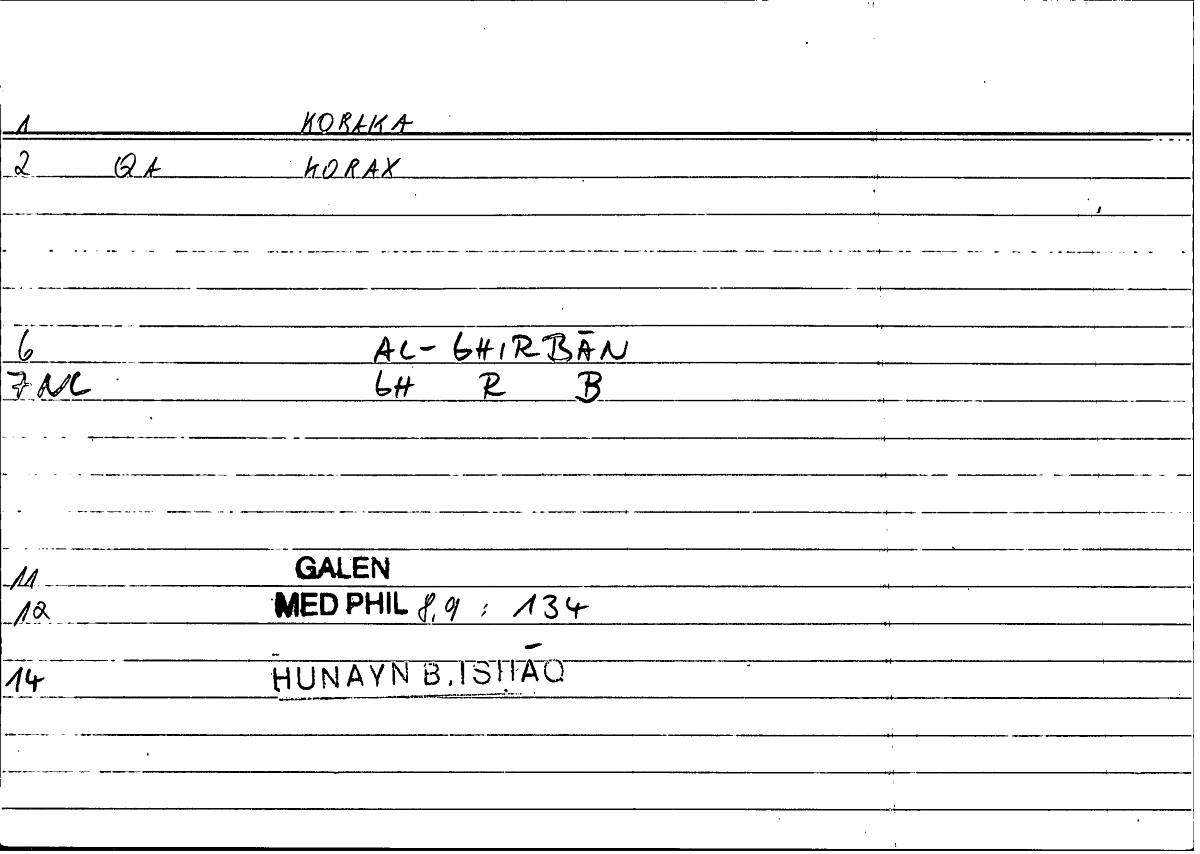 1 KORAKA
2 QA KORAX
6 AL-GHIRBĀN
7 NC GH R B
11 GALEN
12 MED PHIL 8,9 : 134
14 ḤUNAYN B. ISḤĀQ